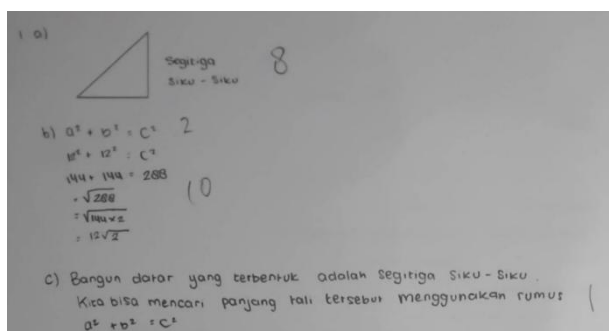 1 a)
Segitiga 8
Siku - Siku
b) a² + b² = c² 2
12² + 12² = c²
144 + 144 = 288
= √288 10
= √144 x 2
= 12√2
c) Bangun datar yang terbentuk adalah segitiga siku - siku.
Kita bisa mencari panjang tali tersebut menggunakan rumus 1
a² + b² = c²